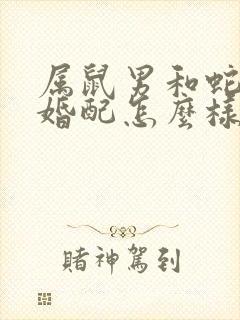 属鼠男和蛇
婚配怎麼樣
賭神駕到